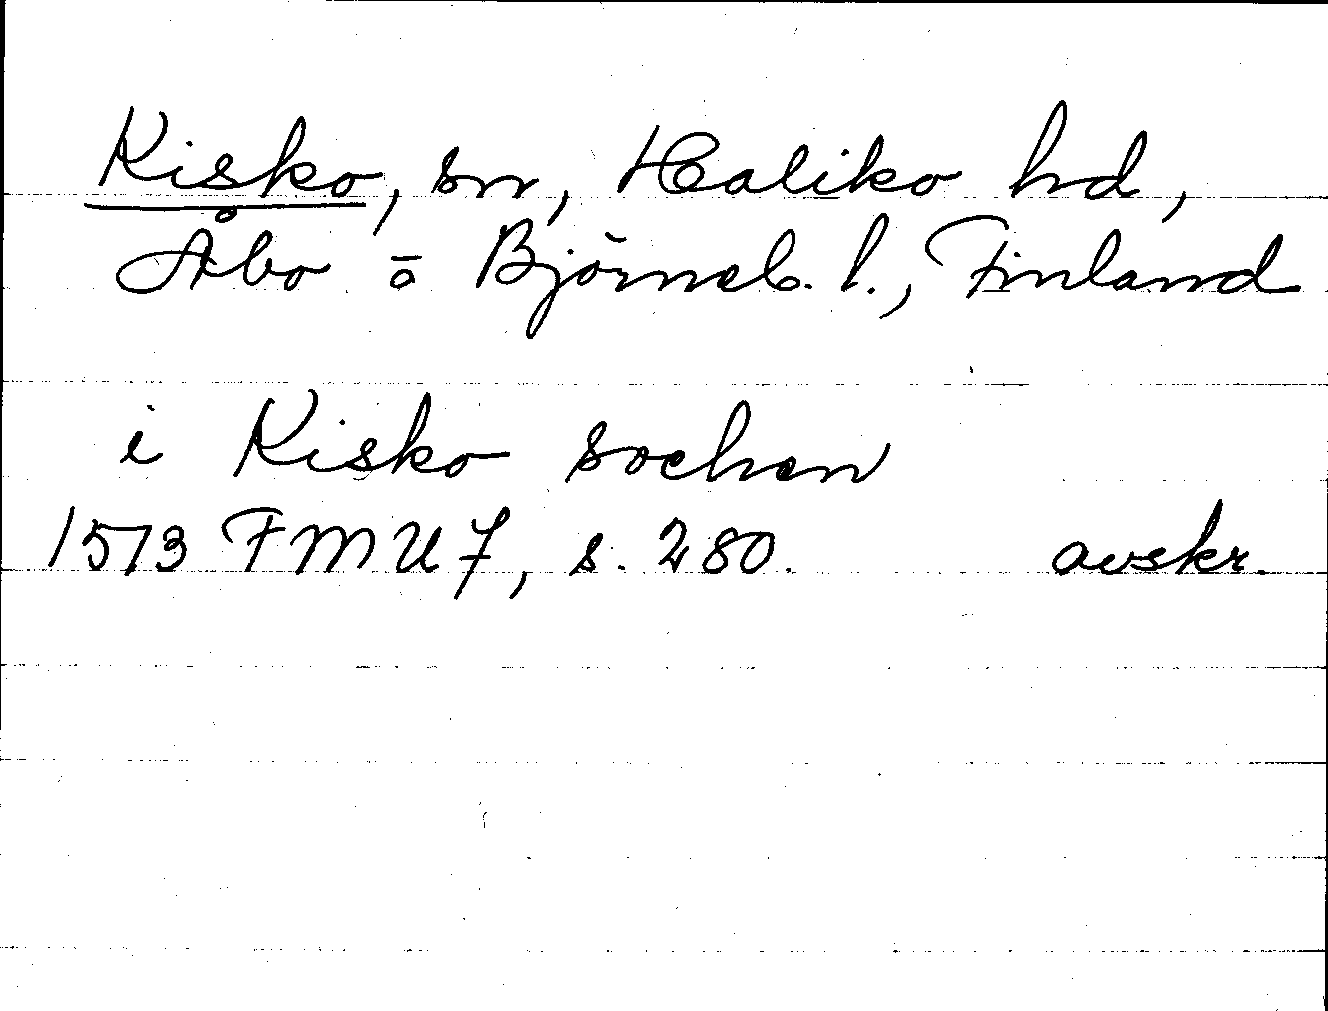 Kisko, sn, Haliko hd,
Åbo o Björneb. l., Finland
i Kisko sochen
1573 FMU 7, s. 280. avskr.